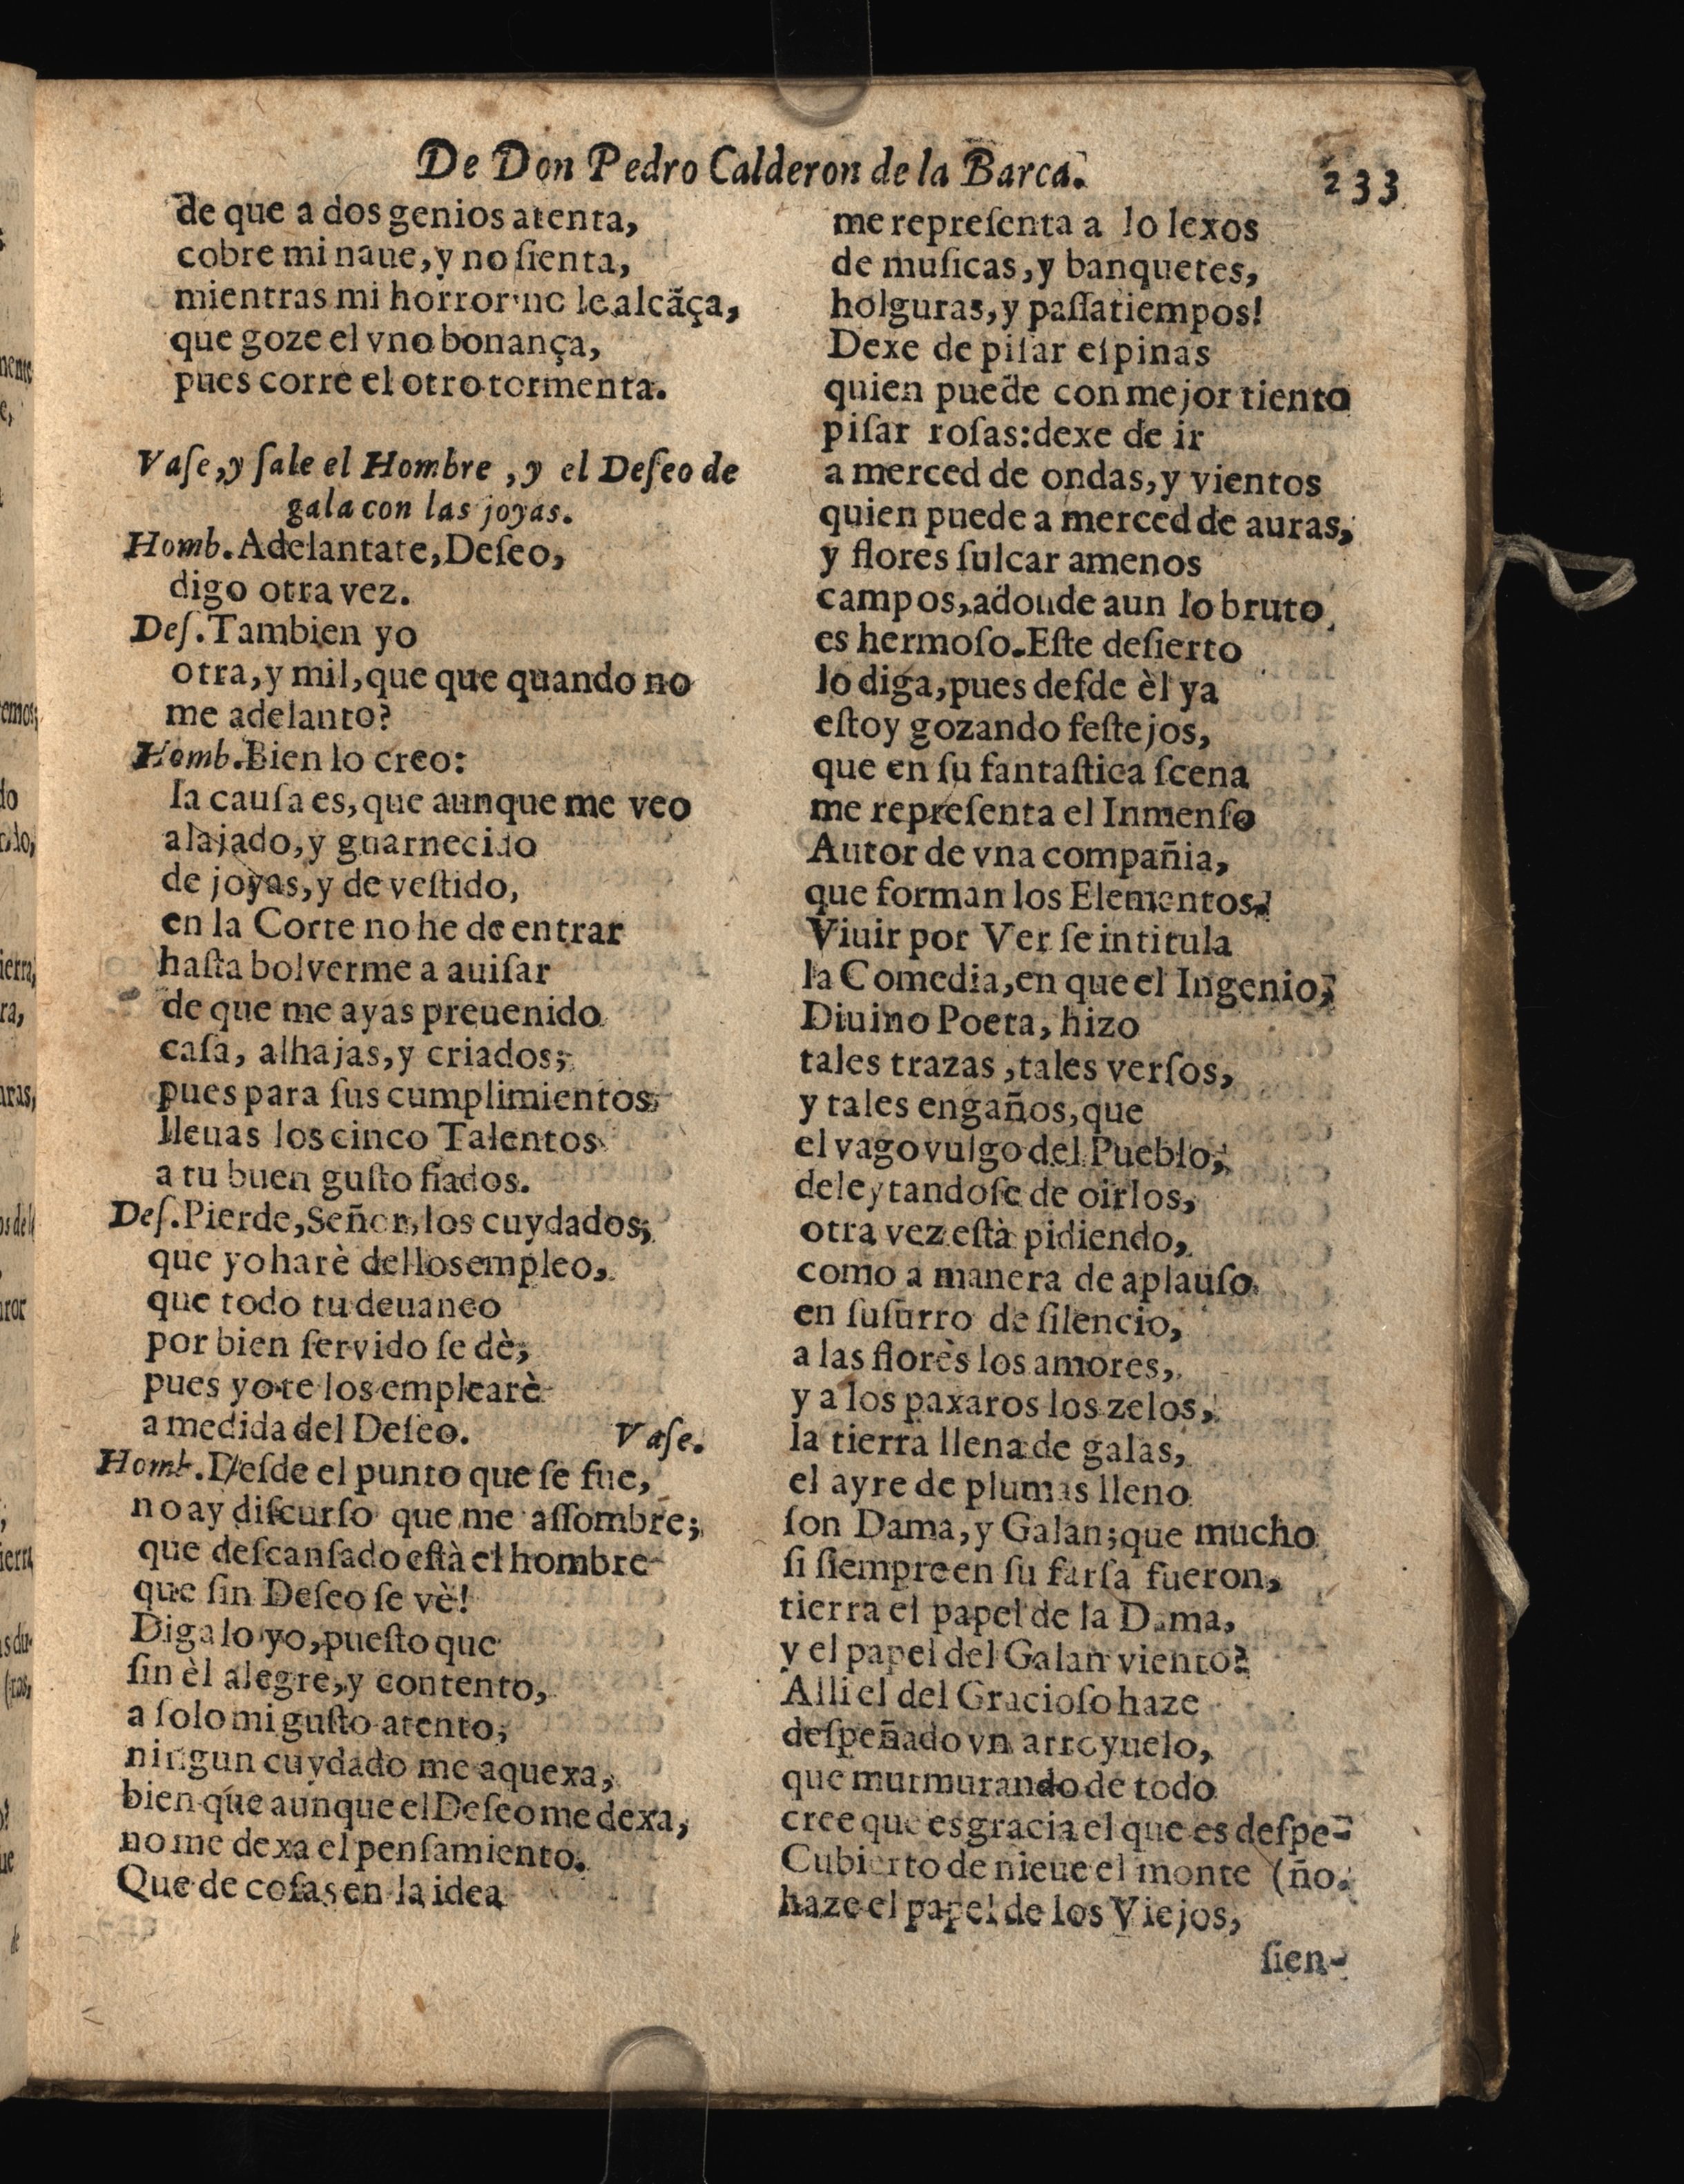 De Don Pedro Calderon de la Barca.
233
de que a dos genios atenta,
cobre mi naue, y no ſienta,
mientras mi horror no le alcãça,
que goze el vno bonança,
pues corre el otro tormenta.
Vaſe, y ſale el Hombre, y el Deſeo de
gala con las joyas.
Homb. Adelantate, Deſeo,
digo otra vez.
Deſ. Tambien yo
otra, y mil, que que quando no
me adelanto?
Homb. Bien lo creo:
la cauſa es, que aunque me veo
alajado, y guarnecido
de joyas, y de veſtido,
en la Corte no he de entrar
haſta bolverme a auiſar
de que me ayas preuenido
caſa, alhajas, y criados;
pues para ſus cumplimientos
lleuas los cinco Talentos
a tu buen guſto fiados.
Deſ. Pierde, Señor, los cuydados;
que yo harè dellos empleo,
que todo tu deuaneo
por bien ſervido ſe dè;
pues yo te los emplearè
a medida del Deſeo. Vaſe.
Homb. Deſde el punto que ſe fue,
no ay diſcurſo que me aſſombre;
que deſcanſado eſtà el hombre
que ſin Deſeo ſe vè!
Digalo yo, pueſto que
ſin èl alegre, y contento,
a ſolo mi guſto atento,
ningun cuydado me aquexa,
bien que aunque el Deſeo me dexa,
no me dexa el penſamiento.
Que de coſas en la idea
me repreſenta a lo lexos
de muſicas, y banquetes,
holguras, y paſſatiempos!
Dexe de piſar eſpinas
quien puede con mejor tiento
piſar roſas: dexe de ir
a merced de ondas, y vientos
quien puede a merced de auras,
y flores ſulcar amenos
campos, adonde aun lo bruto
es hermoſo. Eſte deſierto
lo diga, pues deſde èl ya
eſtoy gozando feſtejos,
que en ſu fantaſtica ſcena
me repreſenta el Inmenſo
Autor de vna compañia,
que forman los Elementos?
Viuir por Ver ſe intitula
la Comedia, en que el Ingenio,
Diuino Poeta, hizo
tales trazas, tales verſos,
y tales engaños, que
el vago vulgo del Pueblo,
deleytandoſe de oirlos,
otra vez eſtà pidiendo,
como a manera de aplauſo
en ſuſurro de ſilencio,
a las florès los amores,
y a los paxaros los zelos,
la tierra llena de galas,
el ayre de plumas lleno
ſon Dama, y Galan; que mucho
ſi ſiempre en ſu farſa fueron,
tierra el papel de la Dama,
y el papel del Galan viento?
Alli el del Gracioſo haze
deſpeñado vn arroyuelo,
que murmurando de todo
cree que es gracia el que es deſpe-
Cubierto de nieue el monte (ño.
haze el papel de los Viejos,
ſien-